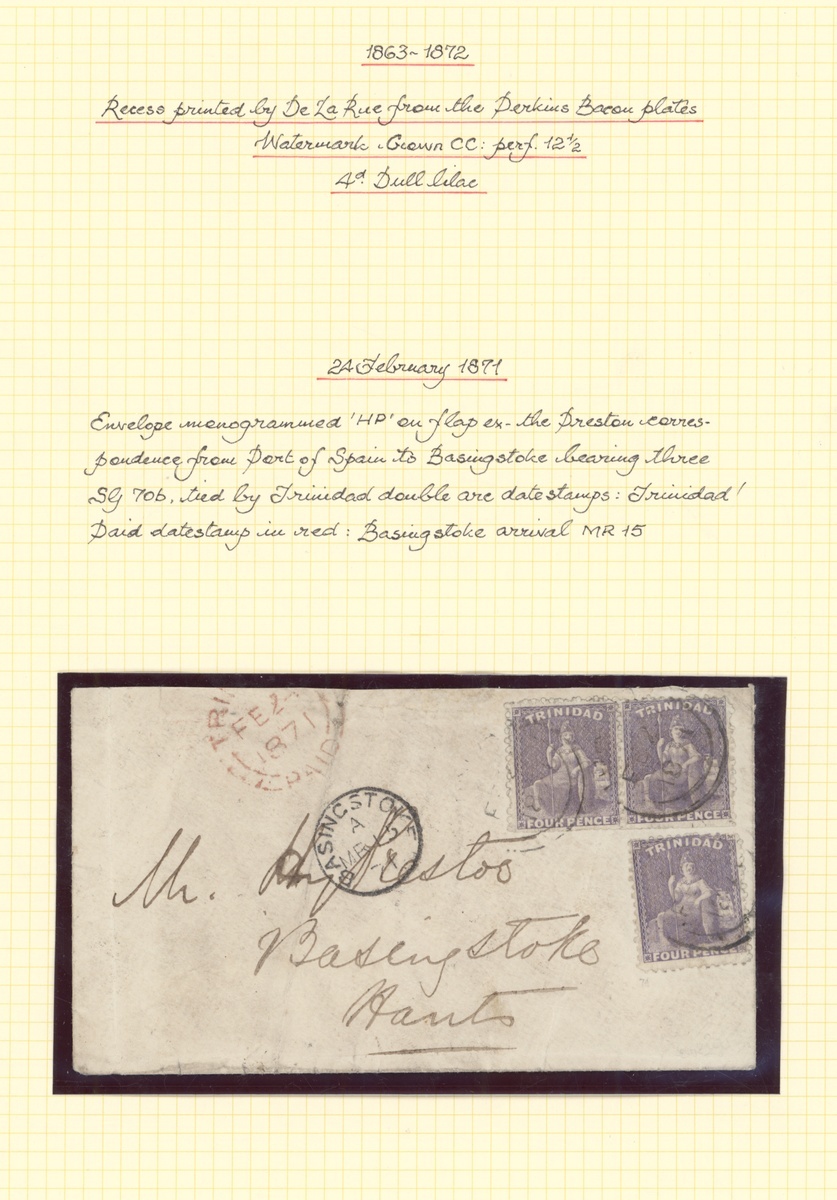 1863~1872
Recess printed by De La Rue from the Perkins Bacon plates
Watermark Crown CC: perf. 12½
4d. Dull lilac
24 February 1871
Envelope monogrammed 'HP' on flap ex- the Preston corres-
pondence from Port of Spain to Basingstoke bearing three
SG 70b, tied by Trinidad double arc datestamps: Trinidad/
Paid datestamp in red: Basingstoke arrival MR 15
TRI
FE 2
1871
PAID
TRINIDAD
FOUR PENCE
TRINIDAD
FOUR PENCE
BASINGSTOKE
A
MR
TRINIDAD
FOUR PENCE
Mr.
Basingstoke
Hants